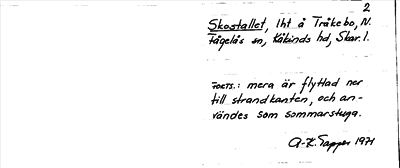 2
Skostallet, lht å Tråkebo, N.
Fågelås sn, Kåkinds hd, Skar. l.
FORTS.: mera är flyttad ner
till strandkanten, och an-
vändes som sommarstuga.
A-K. Tapper 1971